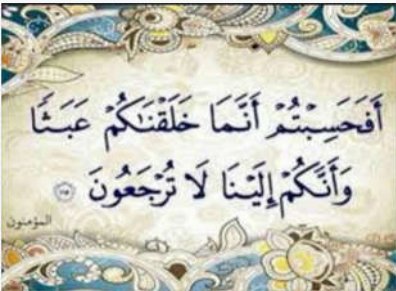 أَفَحَسِبْتُمْ أَنَّمَا خَلَقْنَاكُمْ عَبَثًا
وَأَنَّكُمْ إِلَيْنَا لَا تُرْجَعُونَ ١١٥
المؤمنون